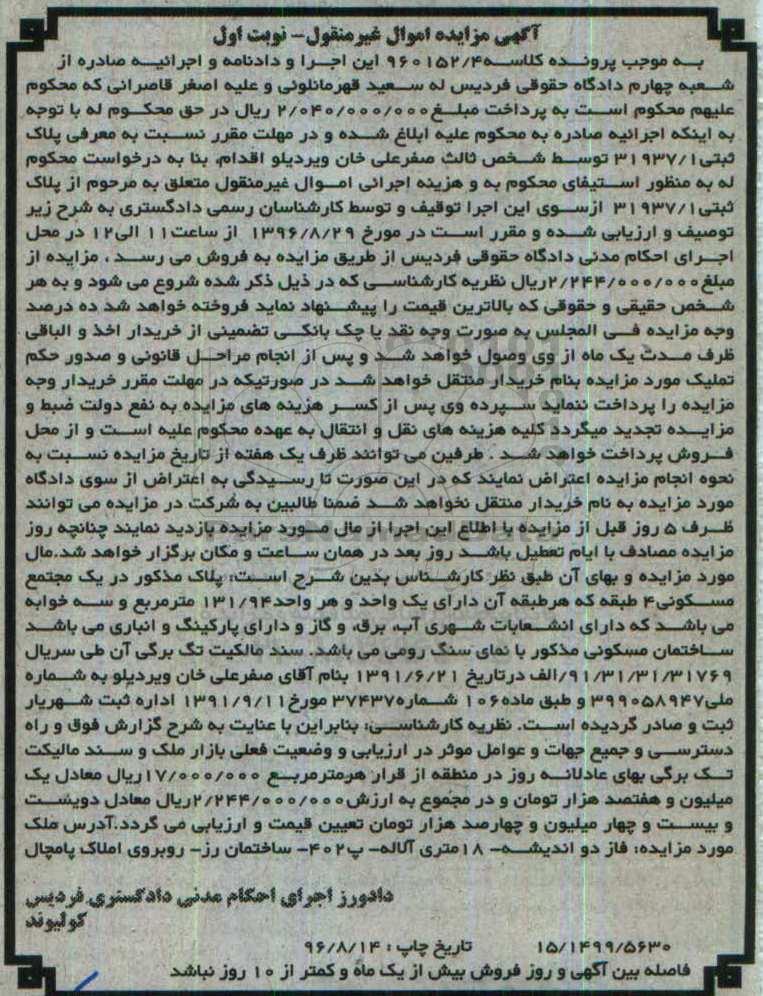 آگهی مزایده اموال غیرمنقول- نوبت اول
به موجب پرونده کلاسه۹۶۰۱۵۲/۴ این اجرا و دادنامه و اجرائیه صادره از
شعبه چهارم دادگاه حقوقی فردیس له سعید قهرمانلوئی و علیه اصغر قاصرانی که محکوم
علیهم محکوم است به پرداخت مبلغ۲/۰۴۰/۰۰۰/۰۰۰ ریال در حق محکوم له با توجه
به اینکه اجرائیه صادره به محکوم علیه ابلاغ شده و در مهلت مقرر نسبت به معرفی پلاک
ثبتی۳۱۹۳۷/۱ توسط شخص ثالث صفرعلی خان ویردیلو اقدام، بنا به درخواست محکوم
له به منظور استیفای محکوم به و هزینه اجرائی اموال غیرمنقول متعلق به مرحوم از پلاک
ثبتی۳۱۹۳۷/۱ ازسوی این اجرا توقیف و توسط کارشناسان رسمی دادگستری به شرح زیر
توصیف و ارزیابی شده و مقرر است در مورخ ۱۳۹۶/۸/۲۹ از ساعت۱۱ الی۱۲ در محل
اجرای احکام مدنی دادگاه حقوقی فردیس از طریق مزایده به فروش می رسد ، مزایده از
مبلغ۲/۲۴۴/۰۰۰/۰۰۰ریال نظریه کارشناسی که در ذیل ذکر شده شروع می شود و به هر
شخص حقیقی و حقوقی که بالاترین قیمت را پیشنهاد نماید فروخته خواهد شد ده درصد
وجه مزایده فی المجلس به صورت وجه نقد یا چک بانکی تضمینی از خریدار اخذ و الباقی
ظرف مدت یک ماه از وی وصول خواهد شد و پس از انجام مراحل قانونی و صدور حکم
تملیک مورد مزایده بنام خریدار منتقل خواهد شد در صورتیکه در مهلت مقرر خریدار وجه
مزایده را پرداخت ننماید سپرده وی پس از کسر هزینه های مزایده به نفع دولت ضبط و
مزایده تجدید میگردد کلیه هزینه های نقل و انتقال به عهده محکوم علیه است و از محل
فروش پرداخت خواهد شد . طرفین می توانند ظرف یک هفته از تاریخ مزایده نسبت به
نحوه انجام مزایده اعتراض نمایند که در این صورت تا رسیدگی به اعتراض از سوی دادگاه
مورد مزایده به نام خریدار منتقل نخواهد شد ضمنا طالبین به شرکت در مزایده می توانند
ظرف ۵ روز قبل از مزایده با اطلاع این اجرا از مال مورد مزایده بازدید نمایند چنانچه روز
مزایده مصادف با ایام تعطیل باشد روز بعد در همان ساعت و مکان برگزار خواهد شد.مال
مورد مزایده و بهای آن طبق نظر کارشناس بدین شرح است: پلاک مذکور در یک مجتمع
مسکونی۴ طبقه که هرطبقه آن دارای یک واحد و هر واحد۱۳۱/۹۴ مترمربع و سه خوابه
می باشد که دارای انشعابات شهری آب، برق، و گاز و دارای پارکینگ و انباری می باشد
ساختمان مسکونی مذکور با نمای سنگ رومی می باشد. سند مالکیت تگ برگی آن طی سریال
۹۱/۳۱/۳۱/۳۱۷۶۹/الف درتاریخ ۱۳۹۱/۶/۲۱ بنام آقای صفرعلی خان ویردیلو به شماره
ملی۳۹۹۰۵۸۹۴۷ و طبق ماده۱۰۶ شماره۳۷۴۳۷ مورخ۱۳۹۱/۹/۱۱ اداره ثبت شهریار
ثبت و صادر گردیده است. نظریه کارشناسی: بنابراین با عنایت به شرح گزارش فوق و راه
دسترسی و جمیع جهات و عوامل موثر در ارزیابی و وضعیت فعلی بازار ملک و سند مالیکت
تک برگی بهای عادلانه روز در منطقه از قرار هرمترمربع ۱۷/۰۰۰/۰۰۰ریال معادل یک
میلیون و هفتصد هزار تومان و در مجموع به ارزش۲/۲۴۴/۰۰۰/۰۰۰ریال معادل دویست
و بیست و چهار میلیون و چهارصد هزار تومان تعیین قیمت و ارزیابی می گردد.آدرس ملک
مورد مزایده: فاز دو اندیشه- ۱۸متری آلاله- پ۴۰۲- ساختمان رز- روبروی املاک پامچال
دادورز اجرای احکام مدنی دادگستری فردیس
کولیوند
۱۵/۱۴۹۹/۵۶۳۰ تاریخ چاپ : ۹۶/۸/۱۴
فاصله بین آگهی و روز فروش بیش از یک ماه و کمتر از ۱۰ روز نباشد